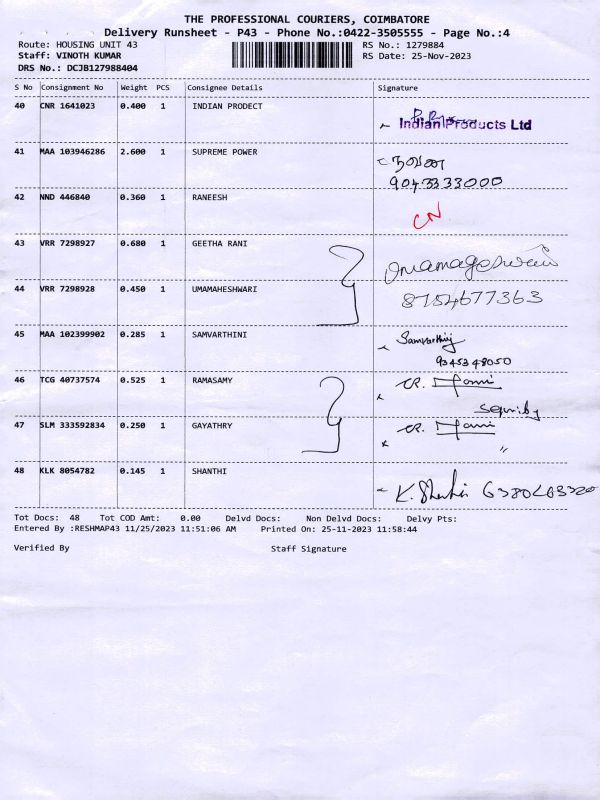 THE PROFESSIONAL COURIERS, COIMBATORE
Delivery Runsheet - P43 - Phone No.:0422-3505555 - Page No.:4
Route: HOUSING UNIT 43 RS No.: 1279884
Staff: VINOTH KUMAR RS Date: 25-Nov-2023
DRS No.: DCJB127988404
S No Consignment No Weight PCS Consignee Details Signature
40 CNR 1641023 0.400 1 INDIAN PRODECT
Indian Products Ltd
41 MAA 103946286 2.600 1 SUPREME POWER
9043333000
42 NND 446840 0.360 1 RANEESH
CN
43 VRR 7298927 0.680 1 GEETHA RANI
Umamageswari
44 VRR 7298928 0.450 1 UMAMAHESHWARI
8754677363
45 MAA 102399902 0.285 1 SAMVARTHINI
Samvarthinj
9345348050
46 TCG 40737574 0.525 1 RAMASAMY
CR. Mani
47 SLM 333592834 0.250 1 GAYATHRY
CR. Mani
"
48 KLK 8054782 0.145 1 SHANTHI
K. Shanthi
Tot Docs: 48 Tot COD Amt: 0.00 Delvd Docs: Non Delvd Docs: Delvy Pts:
Entered By :RESHMAP43 11/25/2023 11:51:06 AM Printed On: 25-11-2023 11:58:44
Verified By Staff Signature